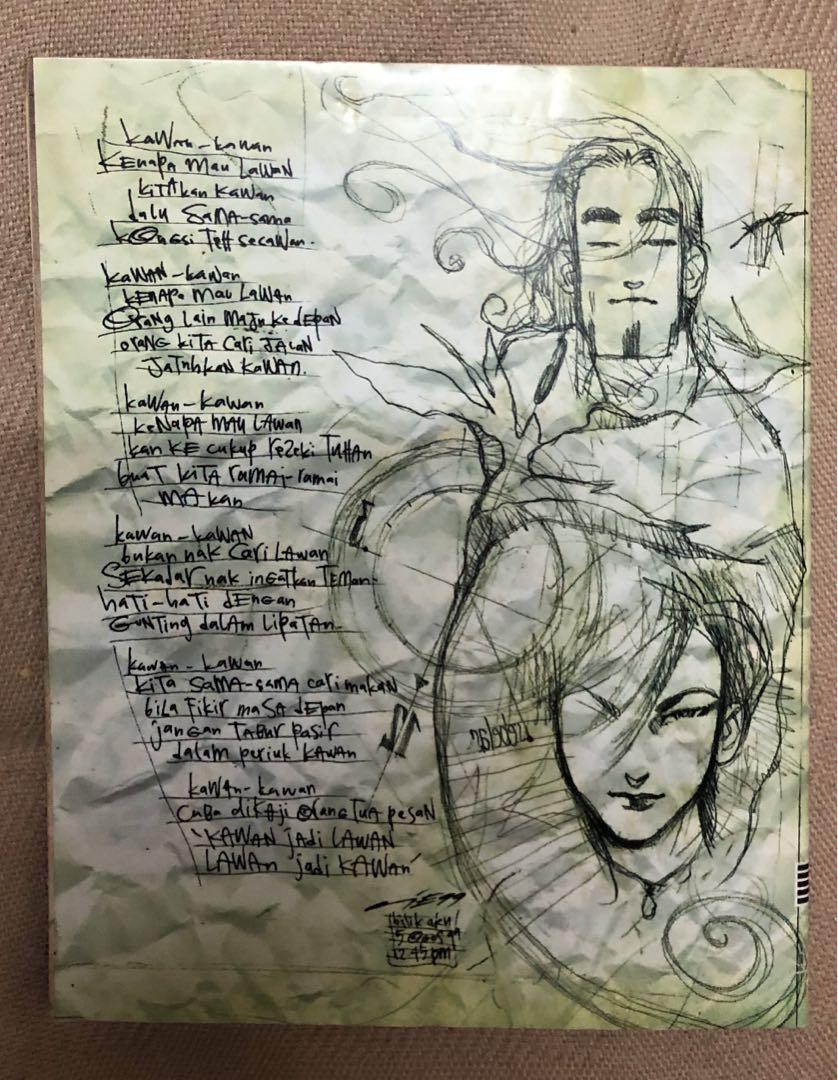 kawan-kawan
Kenapa mau Lawan
kitakan kawan
dalu sama-sama
kongsi Teh secawan.
kawan-kawan
Kenapa mau Lawan
Orang lain maju kedepan
orang kita cari jalan
Jatuhkan kawan.
kawan-kawan
kenapa mau Lawan
kan ke cukup rezeki Tuhan
buat kita ramai-ramai
makan
kawan-kawan
bukan nak cari Lawan
Sekadar nak ingatkan Teman.
hati-hati dengan
Gunting dalam Lipatan.
kawan-kawan
kita sama-sama cari makan
bila fikir masa depan
jangan Tabur pasir
dalam periuk kawan
kawan-kawan
cuba dikaji orang tua pesan
"kawan jadi Lawan
Lawan jadi kawan"
bilik aku!
12.45pm